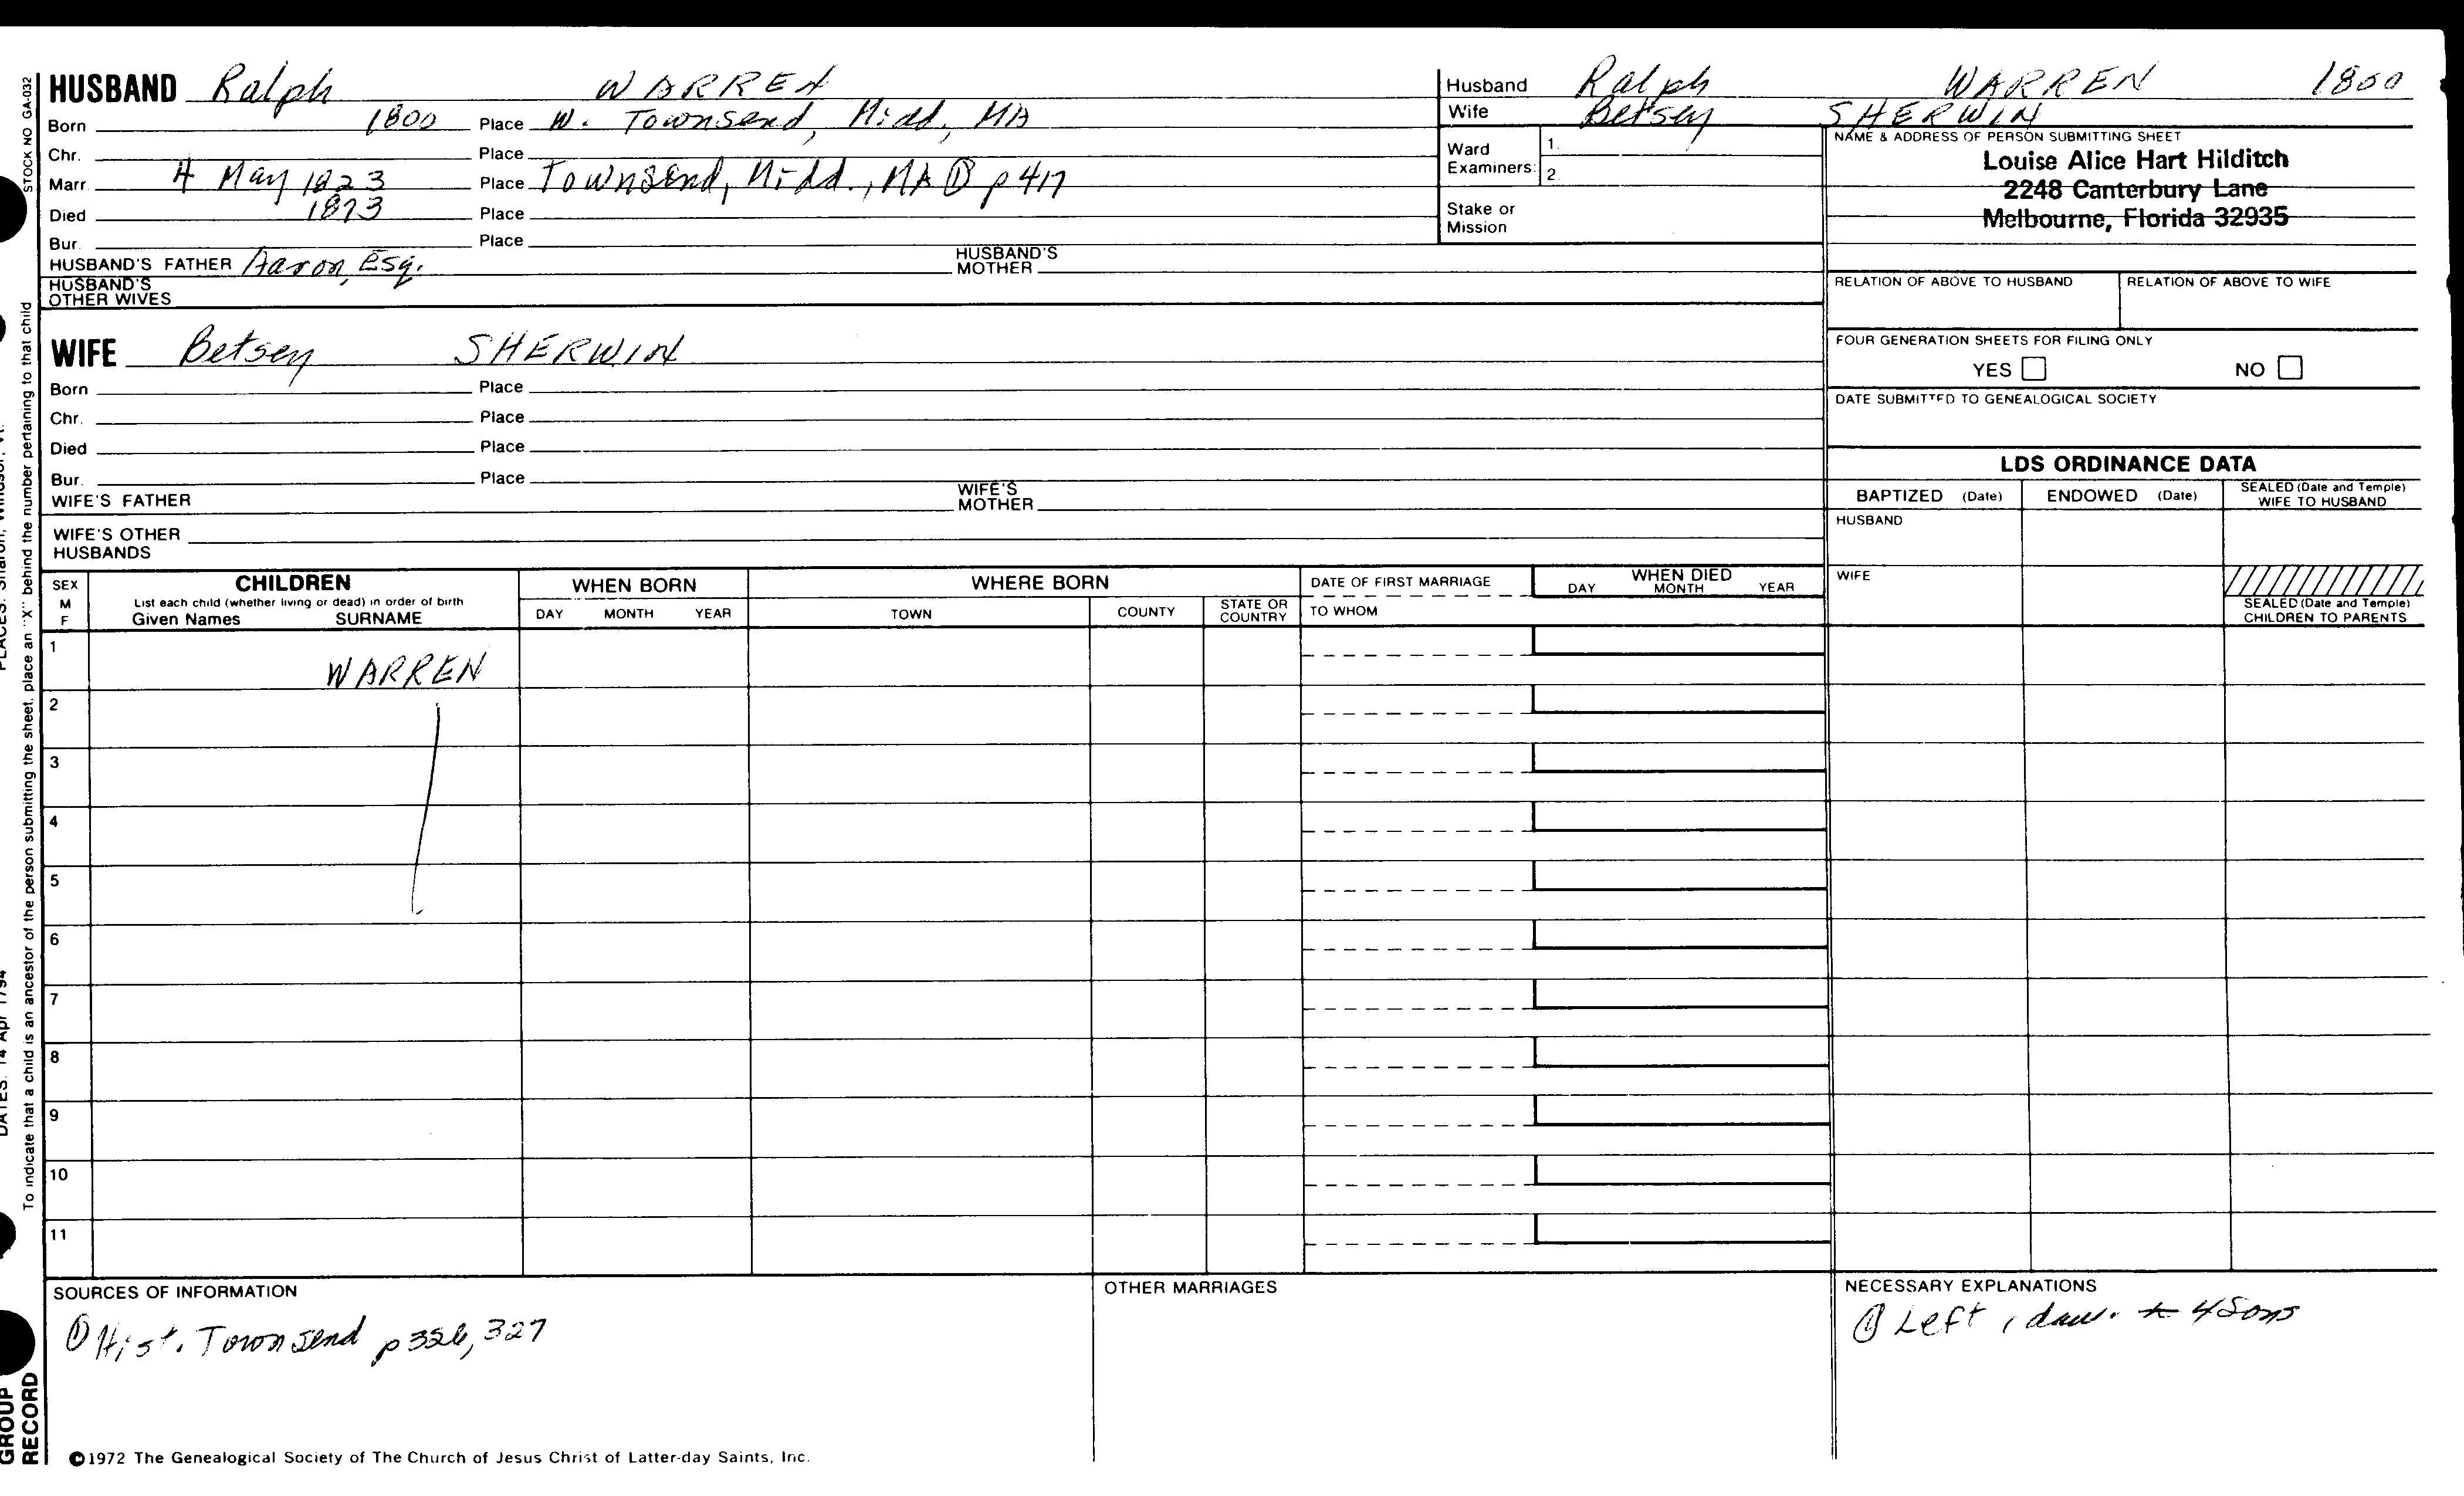 STOCK NO GA-032
HUSBAND Ralph WARREN
Born 1800 Place W. Townsend, Midd, MA
Chr. Place
Marr. 4 May 1823 Place Townsend, Midd., MA ① p 417
Died 1873 Place
Bur. Place
HUSBAND'S FATHER Aaron, Esq. HUSBAND'S MOTHER
HUSBAND'S OTHER WIVES
WIFE Betsey SHERWIN
Born Place
Chr. Place
Died Place
Bur. Place
WIFE'S FATHER WIFE'S MOTHER
WIFE'S OTHER HUSBANDS
Husband Ralph WARREN 1800
Wife Betsey SHERWIN
Ward Examiners: 1. 2.
Stake or Mission
NAME & ADDRESS OF PERSON SUBMITTING SHEET
Louise Alice Hart Hilditch
2248 Canterbury Lane
Melbourne, Florida 32935
RELATION OF ABOVE TO HUSBAND RELATION OF ABOVE TO WIFE
FOUR GENERATION SHEETS FOR FILING ONLY
YES NO
DATE SUBMITTED TO GENEALOGICAL SOCIETY
LDS ORDINANCE DATA
BAPTIZED (Date) ENDOWED (Date) SEALED (Date and Temple) WIFE TO HUSBAND
HUSBAND
WIFE
SEALED (Date and Temple) CHILDREN TO PARENTS
SEX M F
CHILDREN
List each child (whether living or dead) in order of birth
Given Names SURNAME
WHEN BORN
DAY MONTH YEAR
WHERE BORN
TOWN COUNTY STATE OR COUNTRY
DATE OF FIRST MARRIAGE
TO WHOM
WHEN DIED
DAY MONTH YEAR
1 WARREN
2
3
4
5
6
7
8
9
10
11
SOURCES OF INFORMATION
① Hist. Townsend p 326, 327
OTHER MARRIAGES
NECESSARY EXPLANATIONS
① Left 1 dau. + 4 Sons
©1972 The Genealogical Society of The Church of Jesus Christ of Latter-day Saints, Inc.
To indicate that a child is an ancestor of the person submitting the sheet, place an "X" behind the number pertaining to that child
DATES: 14 Apr 1794
GROUP
RECORD